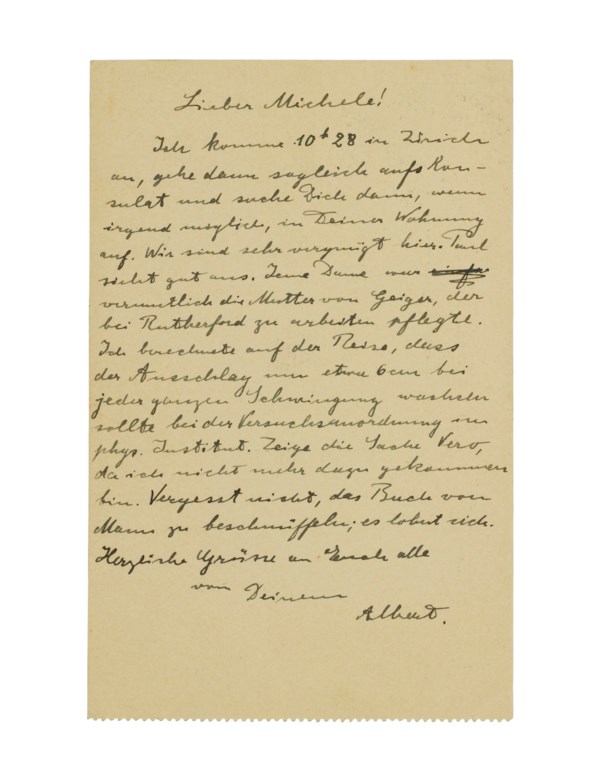 Lieber Michele!
Ich komme 10h 28 in Zürich
an, gehe dann sogleich aufs Kon-
sulat und suche Dich dann, wenn
irgend möglich, in Deiner Wohnung
auf. Wir sind sehr vergnügt hier. Paul
sieht gut aus. Jene Dame war
vermutlich die Mutter von Geiger, der
bei Rutherford zu arbeiten pflegte.
Ich berechnete auf der Reise, dass
der Ausschlag um etwa 6 cm bei
jeder ganzen Schwingung wachsen
sollte bei der Versuchsanordnung im
phys. Institut. Zeige die Sache Vero,
da ich nicht mehr dazu gekommen
bin. Vergesst nicht, das Buch von
Mann zu beschnüffeln; es lohnt sich.
Herzliche Grüsse an Euch alle
von Deinem
Albert.